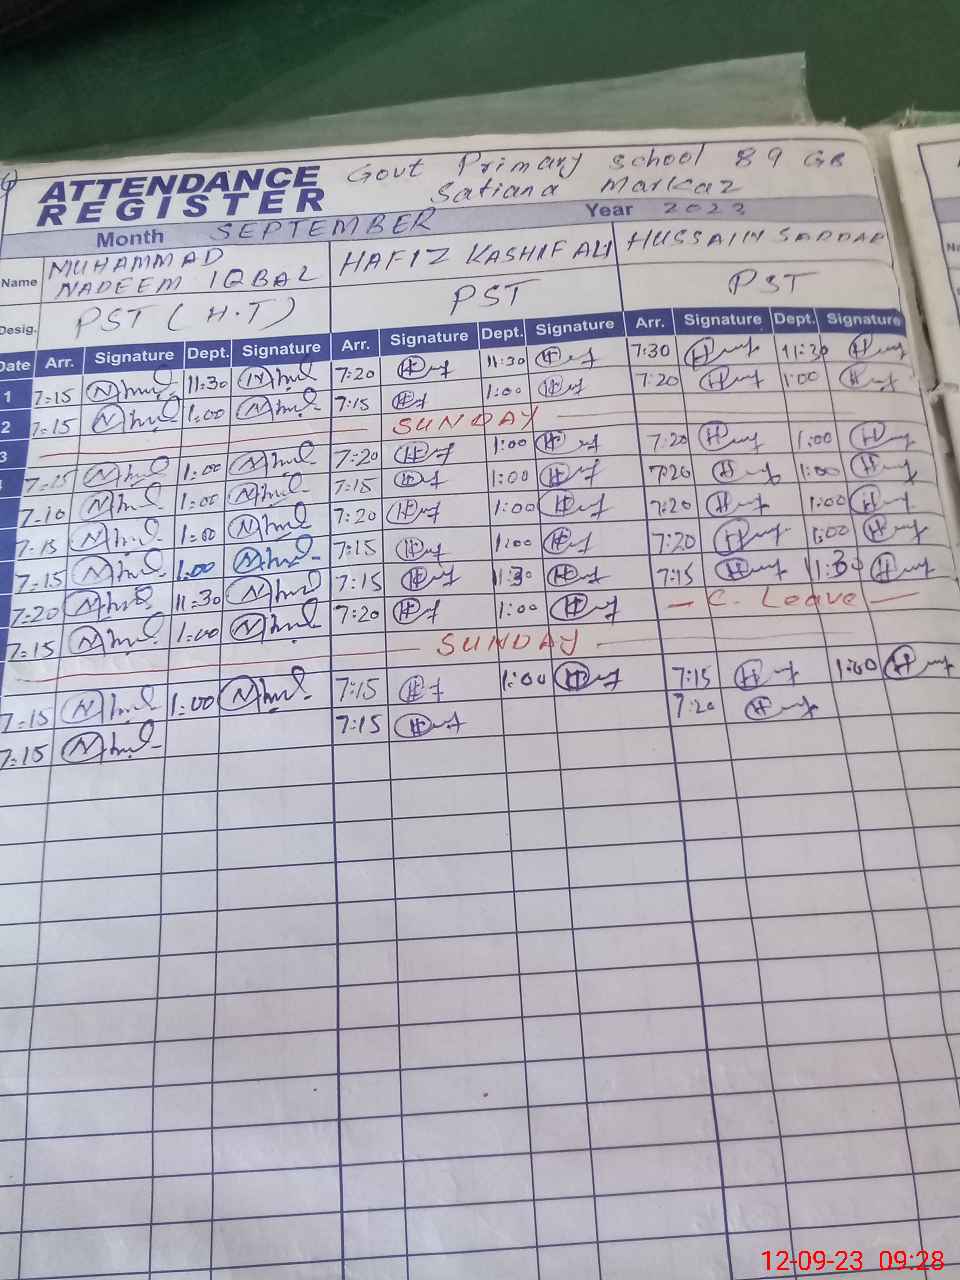 ATTENDANCE REGISTER Govt Primary School 89 GB
Satiana Markaz
Month SEPTEMBER Year 2023
Name MUHAMMAD NADEEM IQBAL HAFIZ KASHIF ALI HUSSAIN SARDAR
Desig. PST (H.T) PST PST
Date Arr. Signature Dept. Signature Arr. Signature Dept. Signature Arr. Signature Dept. Signature
1 7:15 11:30 7:20 11:30 7:30 11:30
2 7:15 1:00 7:15 1:00 7:20 1:00
3 SUNDAY
7:15 1:00 7:20 1:00 7:20 1:00
7:10 1:00 7:15 1:00 7:20 1:00
7:15 1:00 7:20 1:00 7:20 1:00
7:15 1:00 7:15 1:00 7:20 1:00
7:20 11:30 7:15 11:30 7:15 11:30
7:15 1:00 7:20 1:00 C. Leave
SUNDAY
7:15 1:00 7:15 1:00 7:15 1:00
7:15 7:15 7:20
12-09-23 09:28